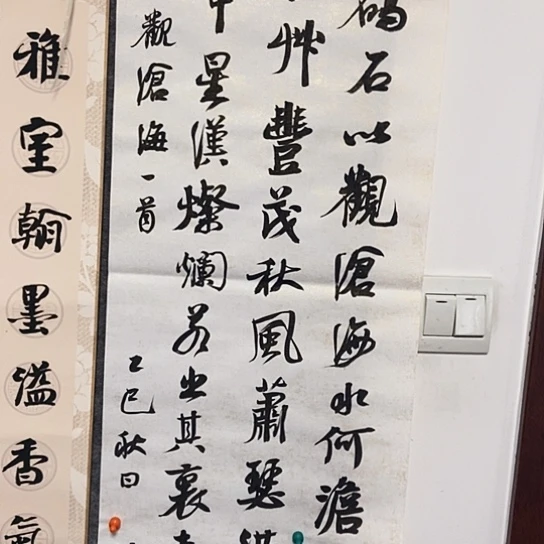 碣石以觀滄海水何澹
艸豐茂秋風蕭瑟
中星漢燦爛若出其裏
觀滄海一首
乙巳秋日
雅室翰墨溢香氣